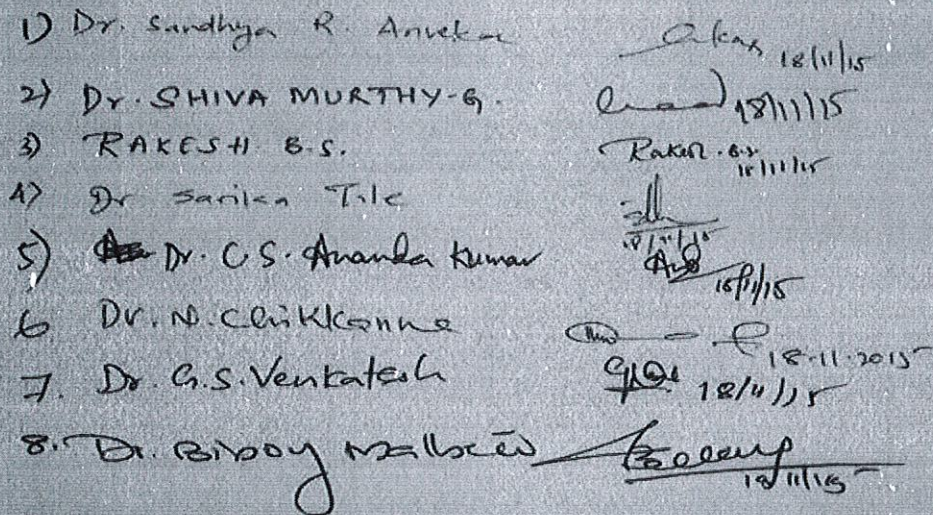 1) Dr. Sandhya R. Anvekar 18/11/15
2) Dr. SHIVA MURTHY-G. 18/11/15
3) RAKESH B.S. Rakesh.B.S. 18/11/15
4) Dr Sarika Tile 18/11/15
5) Dr. C.S. Ananda Kumar 18/11/15
6. Dr. N. Chikkanna 18-11-2015
7. Dr. G.S. Venkatesh 18/11/15
8. Dr. 18/11/15